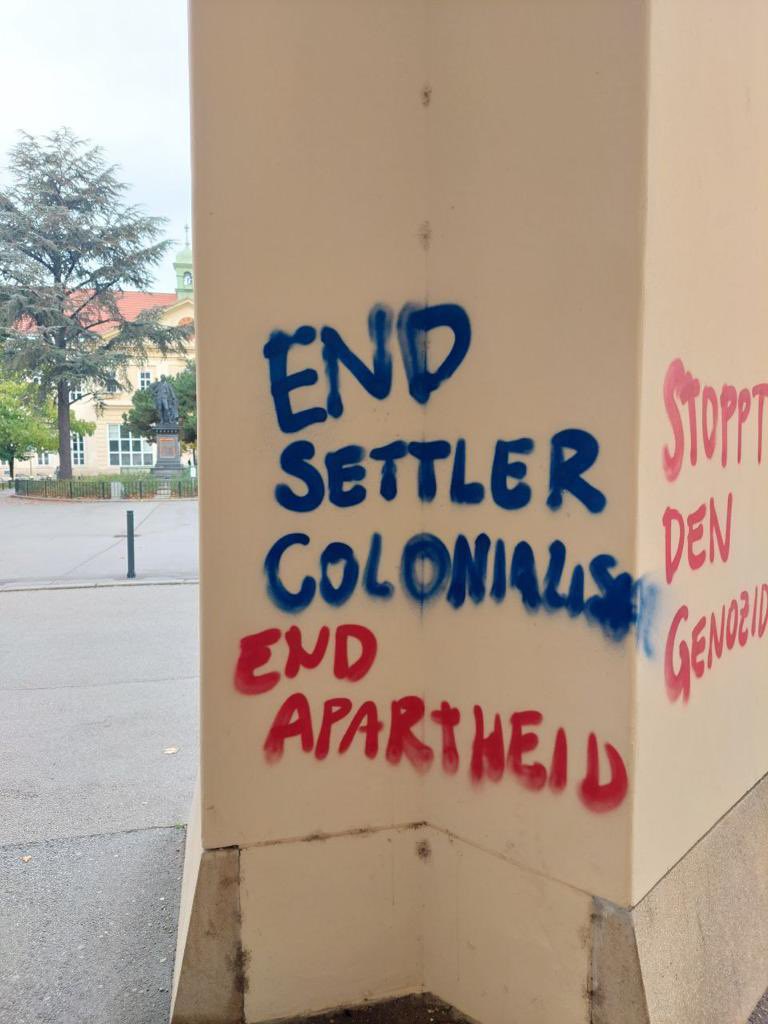 END
SETTLER
COLONIALISM
END
APARTHEID
STOPPT
DEN
GENOZID